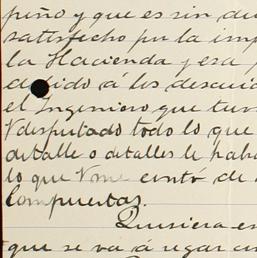 piño y que es sin du
satisfecho por la imp
la Hacienda y esa
debido á los descuid
el Ingeniero que tuv
V disputado todo lo que
detalle o detalles le
lo que V me contó de
Compuertas.
Quisiera
que se va á regar